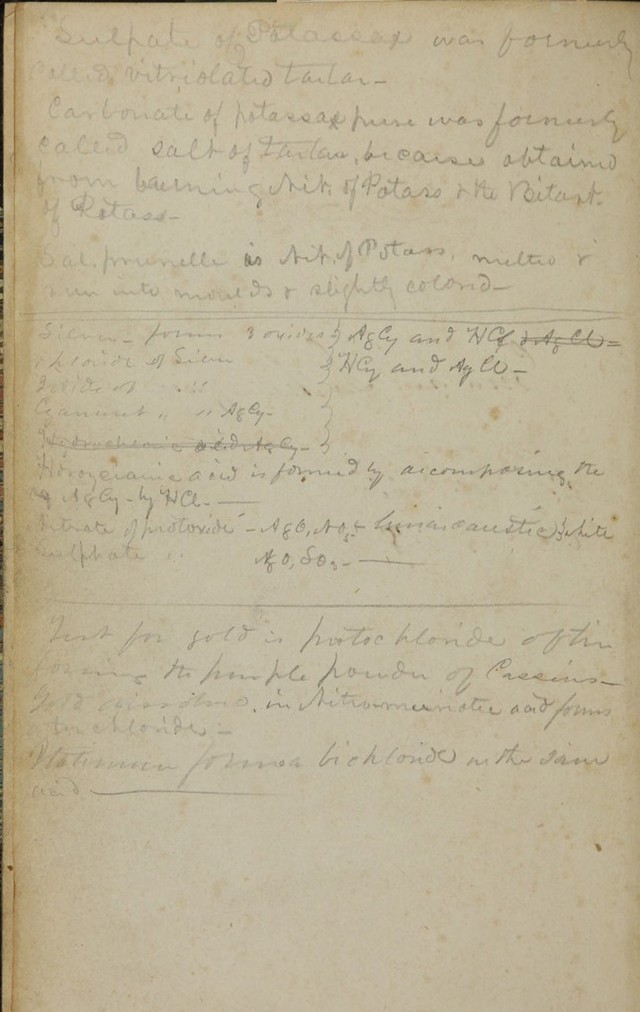 Sulpate of Potassa was formerly
called vitriolated tartar-
Carbonate of potassa pure was formerly
called salt of tartar, because obtained
from burning Nit. of Potass & the Bitart.
of Potass-
Sal. prunelle is Nit. of Potass, melted &
run into moulds & slightly colored-
Silver - forms 3 oxides } AgCy and HCl & AgCl =
chloride of Silver } HCy and AgCl -
Iodide of " "
Cyanuret " " AgCy-
Hydrocyanic acid AgCy-
Hydrocyanic acid is formed by decomposing the
AgCy- by HCl. -
Nitrate of protoxide - AgO, NO5 lunar caustic white
sulphate " AgO, SO3 -
Test for gold is protochloride of tin
forming the purple powder of Cassius-
Gold dissolves in Nitro-muriatic acid forms
terchloride -
Platinum forms a bichloride in the same
acid